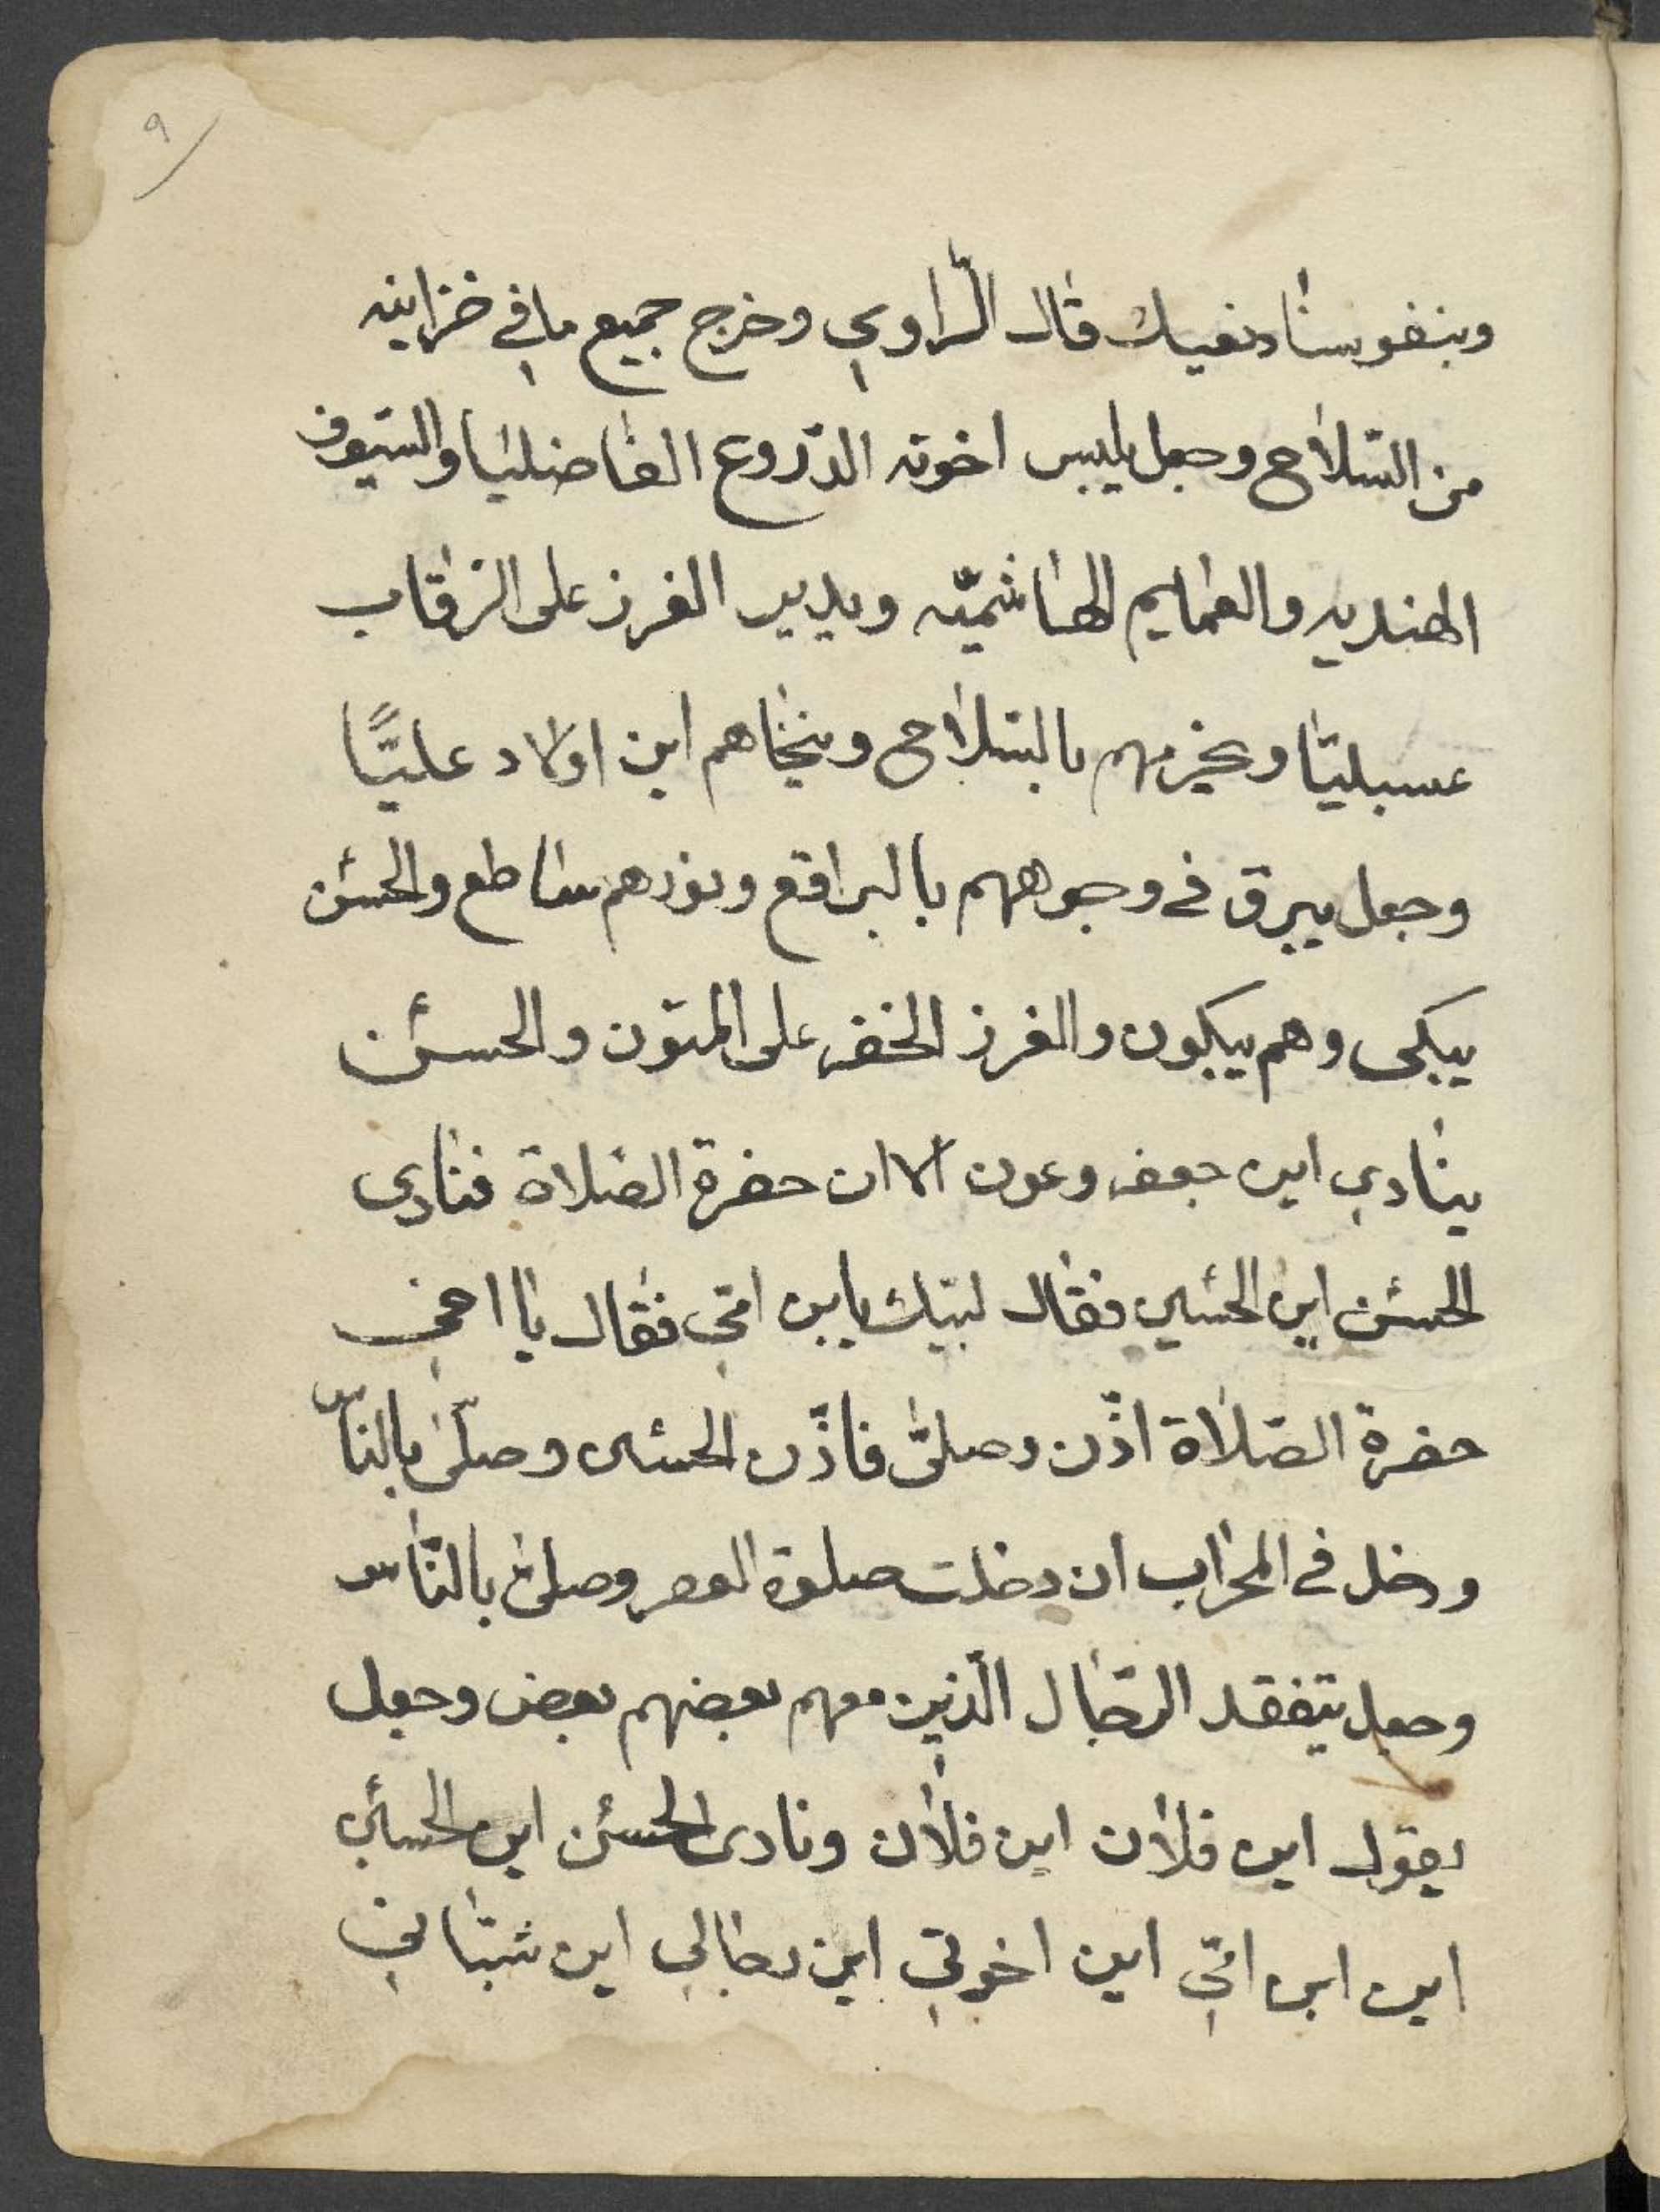 ٩
وبنفوسنا نفديك قال الراوي وخرج جميع ما في خزاينه
من السّلاح وجعل يلبس اخوته الدّروع الفاضليا والسّيوف
الهنديه والعمايم الهاشميّه ويدير الغرز على الرقاب
عسبليّا ويحزمهم بالسّلاح وينخاهم اين اولاد عليًّا
وجعل يبرق في وجوههم بالبراقع ونورهم ساطع والحسن
يبكى وهم يبكون والغرز الخضر على المتون والحسن
ينادي اين جعفر وعون الاان حضرة الصّلاة فنادى
الحسن اين الحسين فقال لبيّك يابن امّي فقال يا اخي
حضرة الصّلاة اذّن وصلّى فاذّن الحسين وصلّى بالنّاس
ودخل في المحراب ان دخلت صلوة العصر وصلّى بالنّاس
وجعل يتفقد الرّجال الّذين معهم بعضهم بعض وجعل
يقول اين فلان اين فلان ونادى الحسن اين الحسين
اين ابن امّي اين اخوتي اين رجالي اين شبّاني